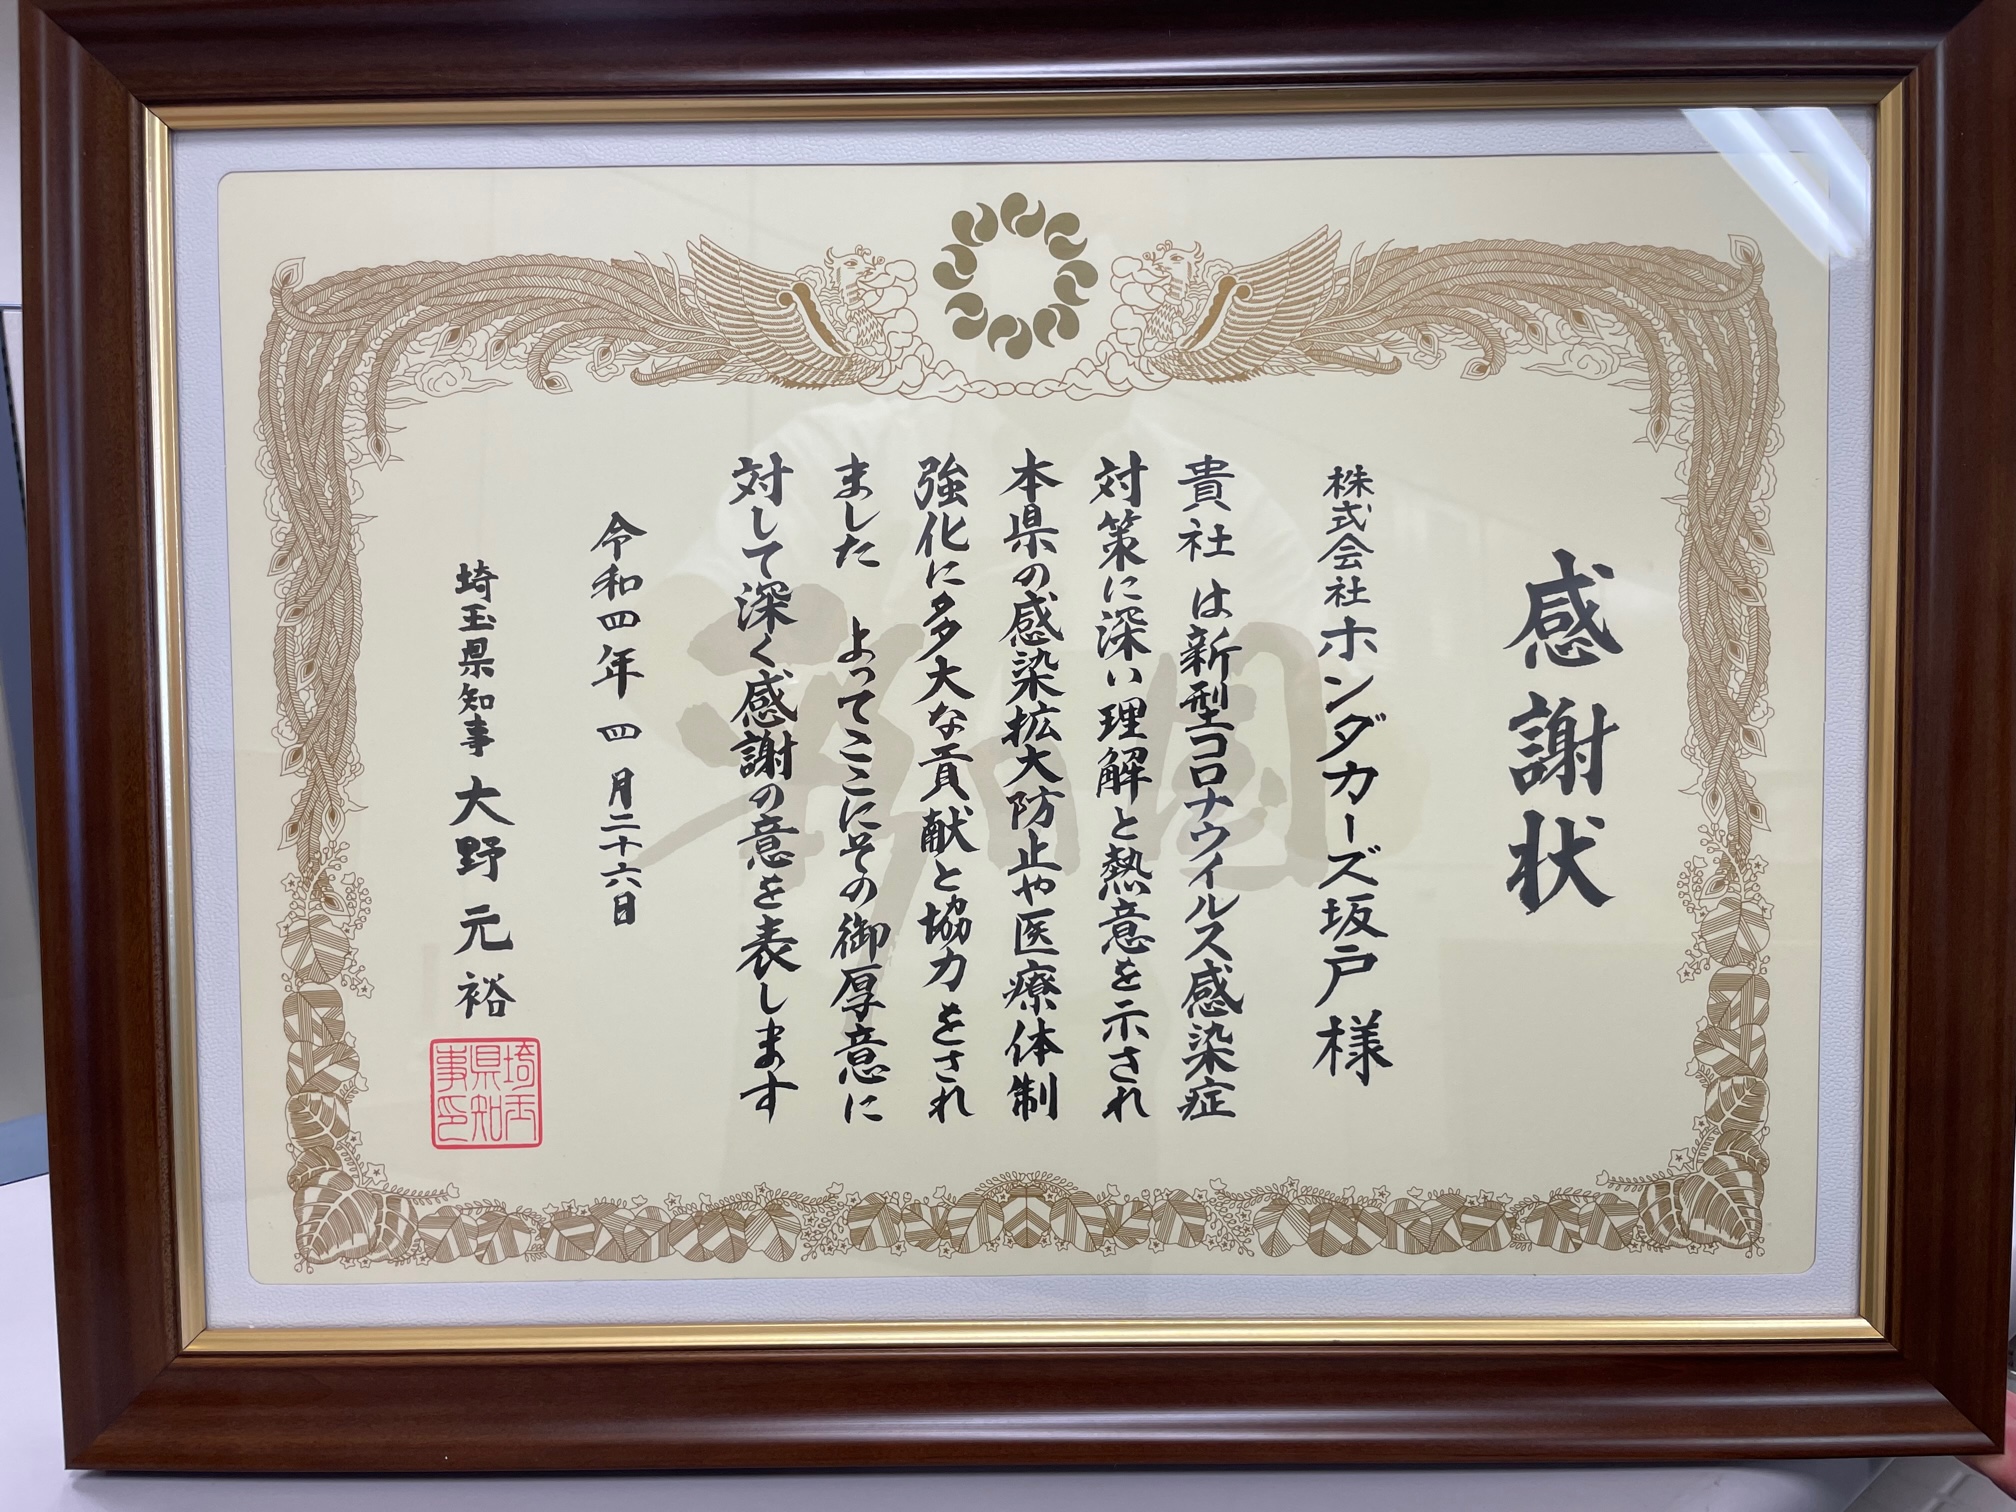 感謝状
株式会社ホンダカーズ坂戸様
貴社は新型コロナウイルス感染症
対策に深い理解と熱意を示され
本県の感染拡大防止や医療体制
強化に多大な貢献と協力をされ
ました よってここにその御厚意に
対して深く感謝の意を表します
令和四年四月二十六日
埼玉県知事 大野元裕
埼玉
県知
事印